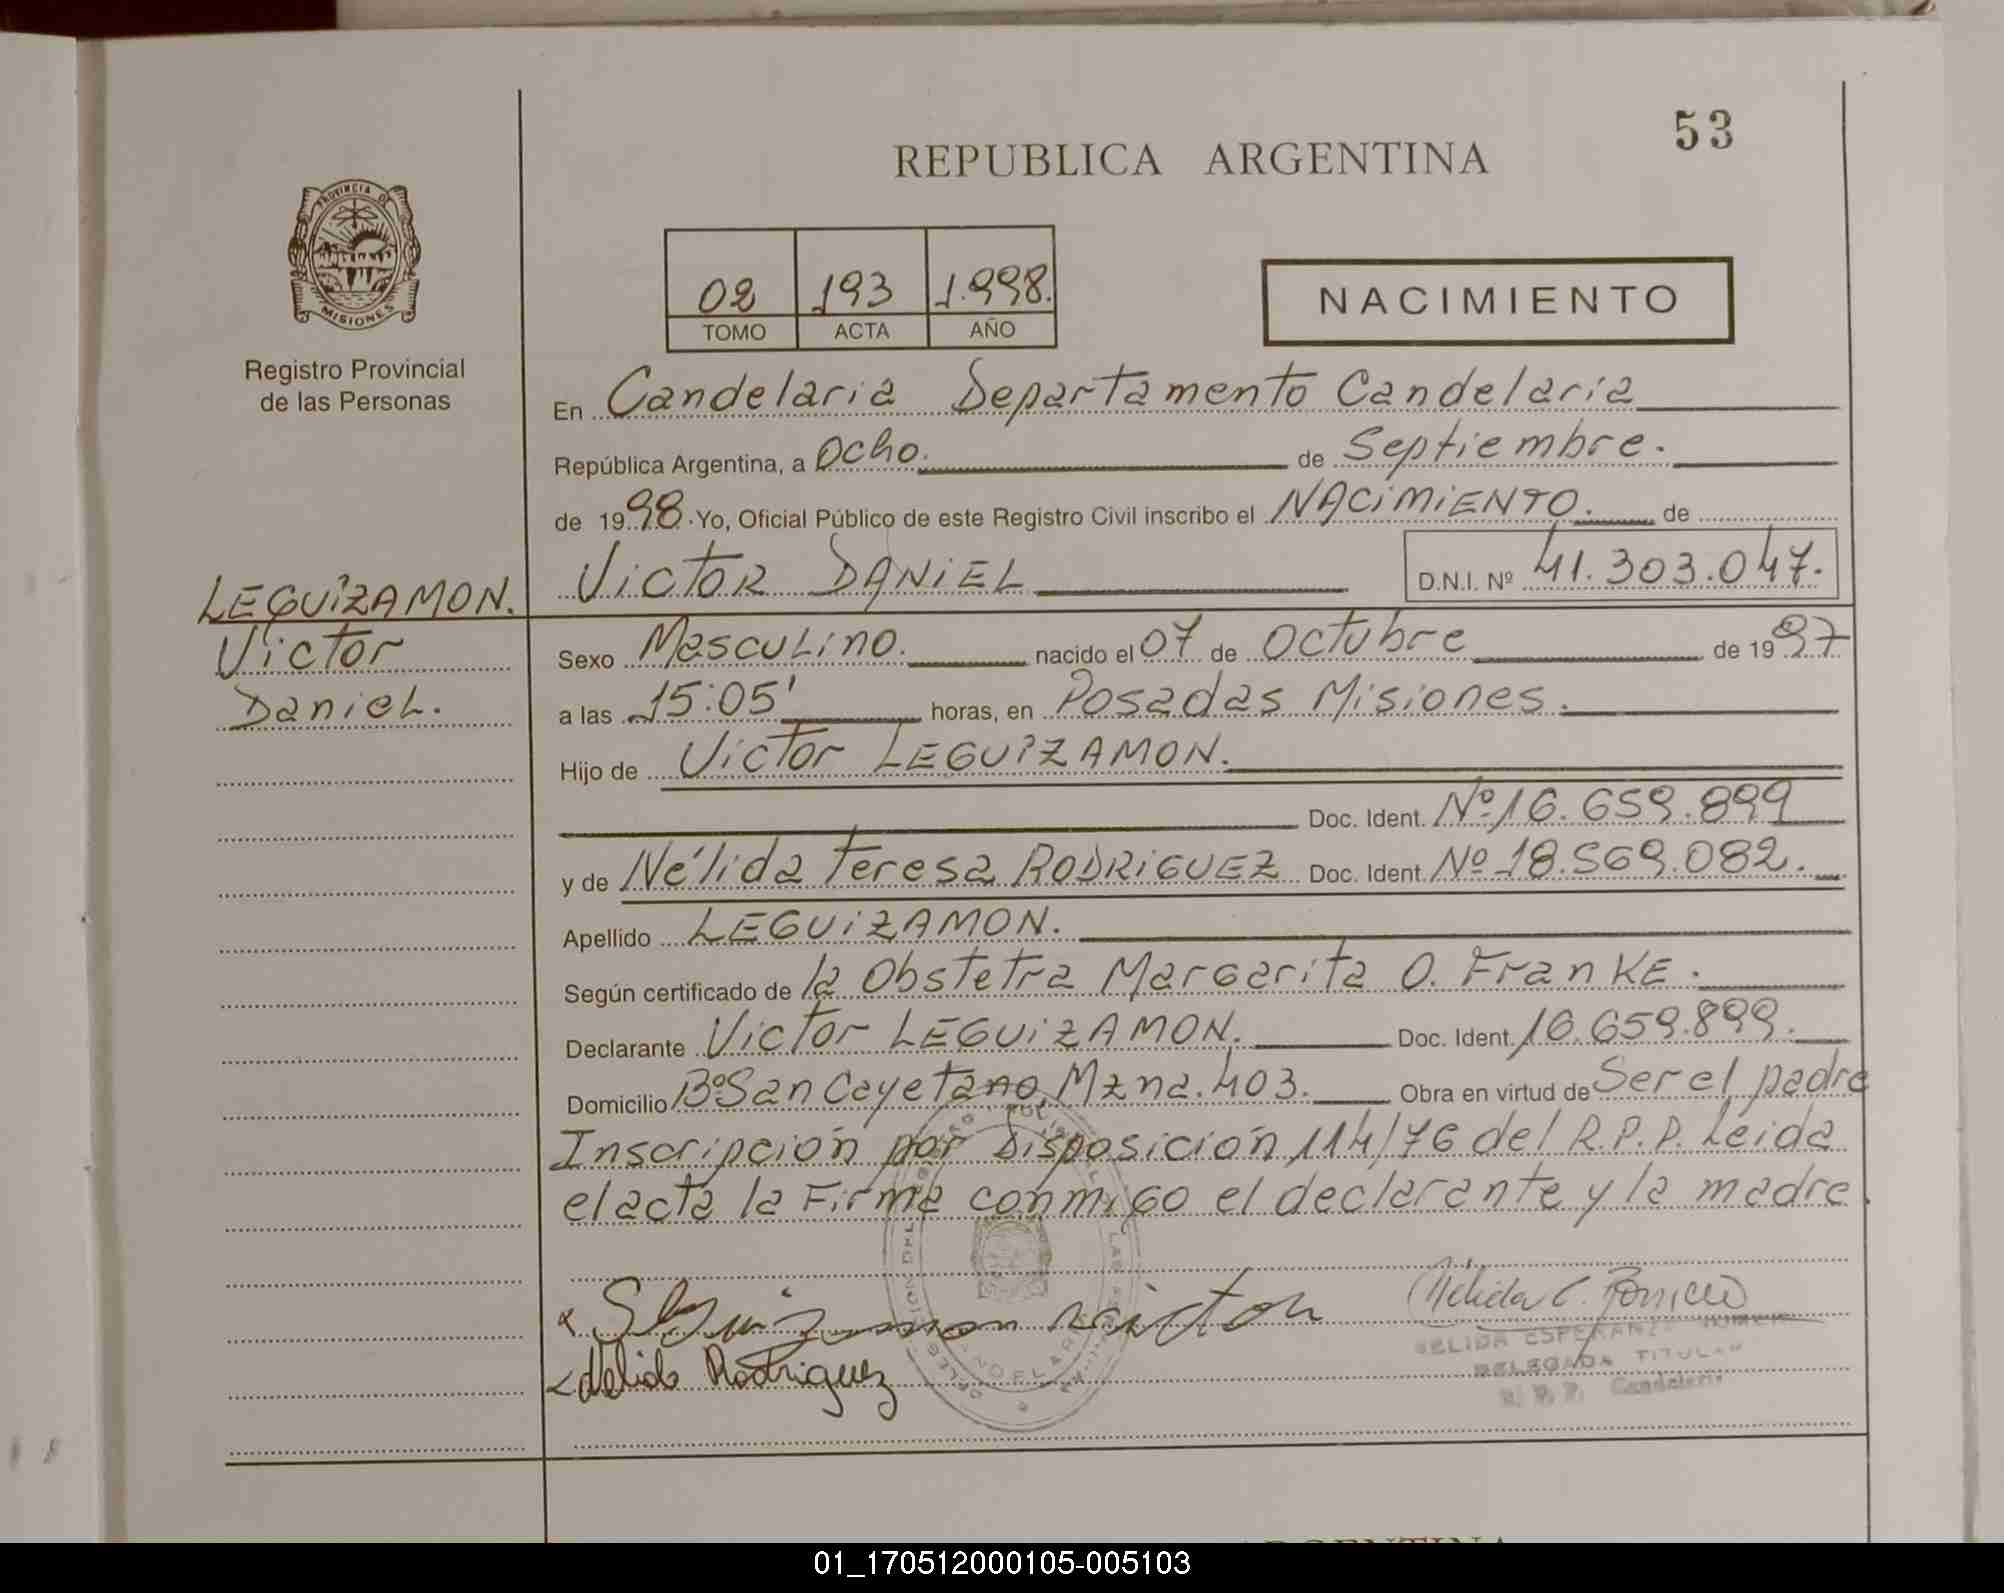 53
REPUBLICA ARGENTINA
PROVINCIA DE
MISIONES
Registro Provincial
de las Personas
02 193 1.998.
TOMO ACTA AÑO
NACIMIENTO
En Candelaria Departamento Candelaria
República Argentina, a Ocho. de Septiembre.
de 1998. Yo, Oficial Público de este Registro Civil inscribo el NACIMIENTO. de
VICTOR DANIEL D.N.I. Nº 41.303.047.
LEGUIZAMON.
Victor
Daniel.
Sexo Masculino. nacido el 07 de Octubre de 1997
a las 15:05' horas, en Posadas Misiones.
Hijo de Victor LEGUIZAMON.
Doc. Ident. Nº 16.659.899
y de Nélida Teresa RODRIGUEZ Doc. Ident. Nº 18.569.082.
Apellido LEGUIZAMON.
Según certificado de la Obstetra Margarita O. Franke.
Declarante Victor LEGUIZAMON. Doc. Ident. 16.659.899.
Domicilio Bº San Cayetano, Mzna. 403. Obra en virtud de Ser el padre
Inscripción por Disposición 114/76 del R.P.P. Leida
el acta la Firma conmigo el declarante y la madre.
Nelida Rodriguez
DELEGADA TITULAR
R. P. P. Candelaria
ARGENTINA
01_170512000105-005103